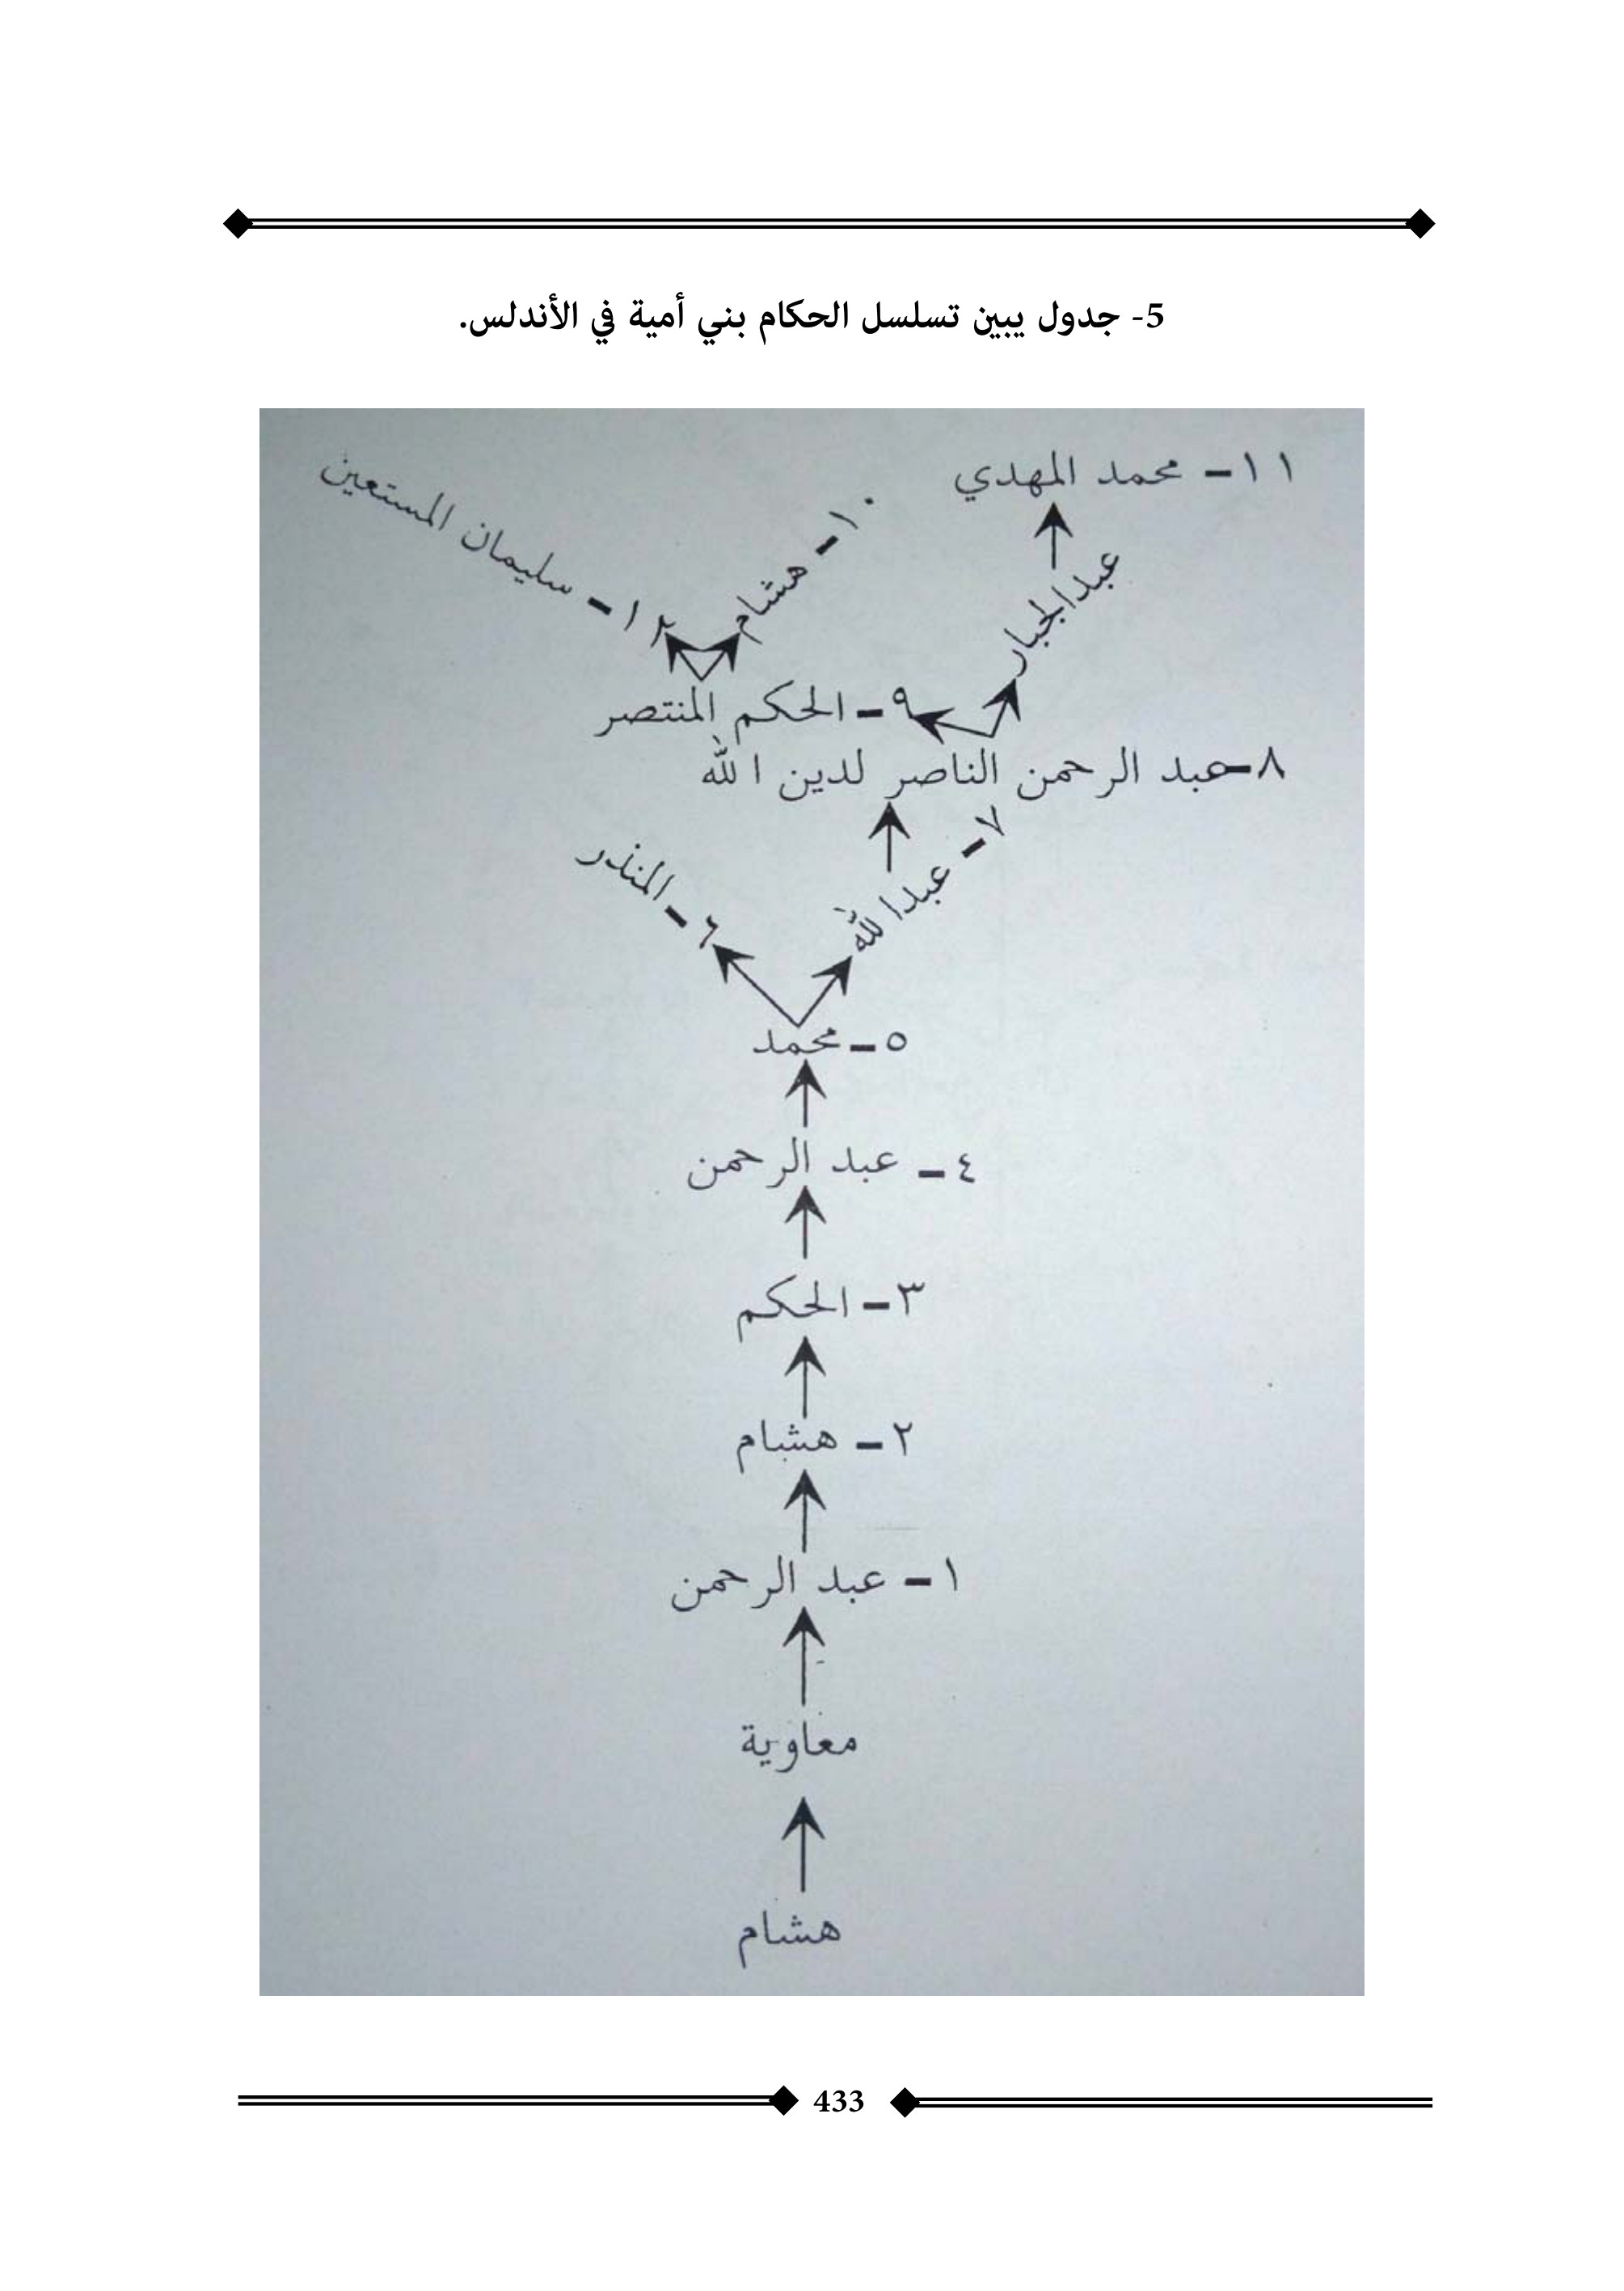 5- جدول يبين تسلسل الحكام بني أمية في الأندلس.
١١- محمد المهدي
عبدالجبار
١٠- هشام
١٢- سليمان المستعين
٩- الحكم المنتصر
٨- عبد الرحمن الناصر لدين الله
٧- عبدالله
٦- المنذر
٥- محمد
٤- عبد الرحمن
٣- الحكم
٢- هشام
١- عبد الرحمن
معاوية
هشام
433